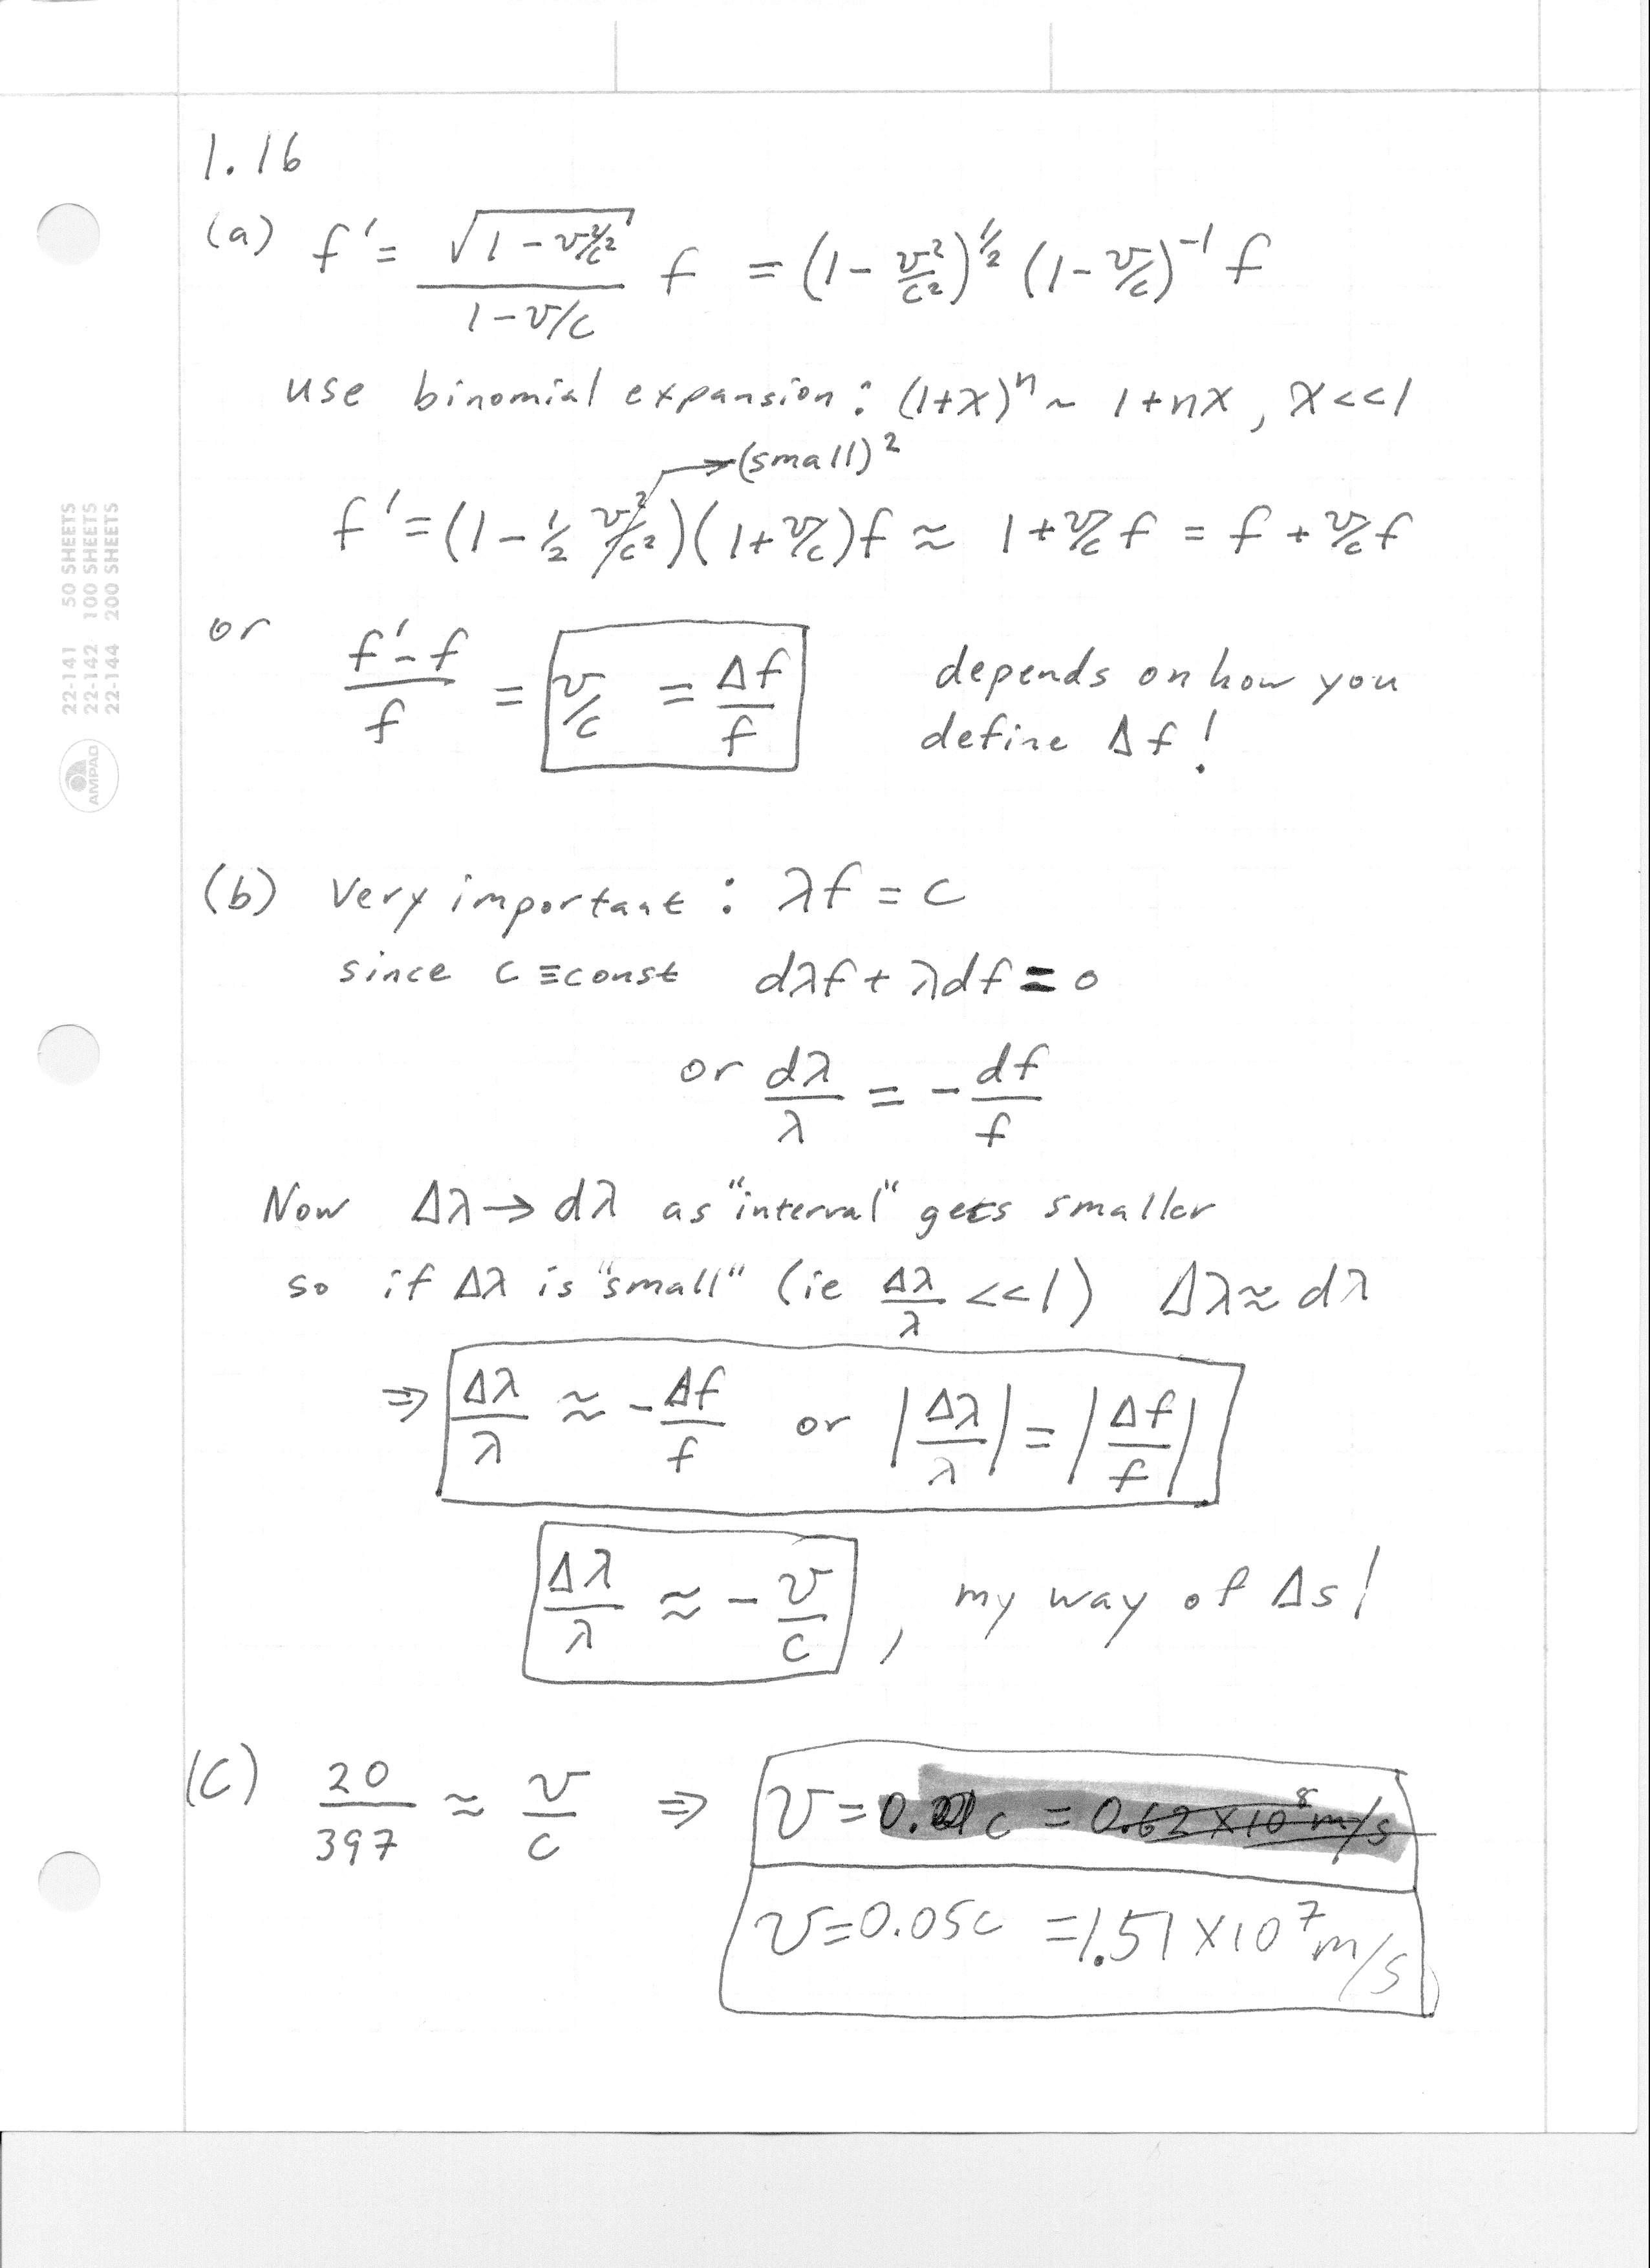 1.16
(a) f' = √(1 - v²/c²) / (1 - v/c) f = (1 - v²/c²)^½ (1 - v/c)^-1 f
use binomial expansion: (1+x)^n ~ 1+nx, x<<1
→(small)²
f' = (1 - ½ v²/c²)(1 + v/c)f ≈ 1 + v/c f = f + v/c f
or (f' - f)/f = v/c = Δf/f depends on how you
define Δf!
(b) Very important: λf = c
since c ≡ const dλf + λdf = 0
or dλ/λ = - df/f
Now Δλ → dλ as "interval" gets smaller
so if Δλ is "small" (ie Δλ/λ <<1) Δλ ≈ dλ
⇒ Δλ/λ ≈ - Δf/f or |Δλ/λ| = |Δf/f|
Δλ/λ ≈ - v/c, my way of Δs!
(c) 20/397 ≈ v/c ⇒ v = c = 0.62 x 10^8 m/s
v = 0.05c = 1.51 x 10^7 m/s
22-141 50 SHEETS
22-142 100 SHEETS
22-144 200 SHEETS
AMPAD